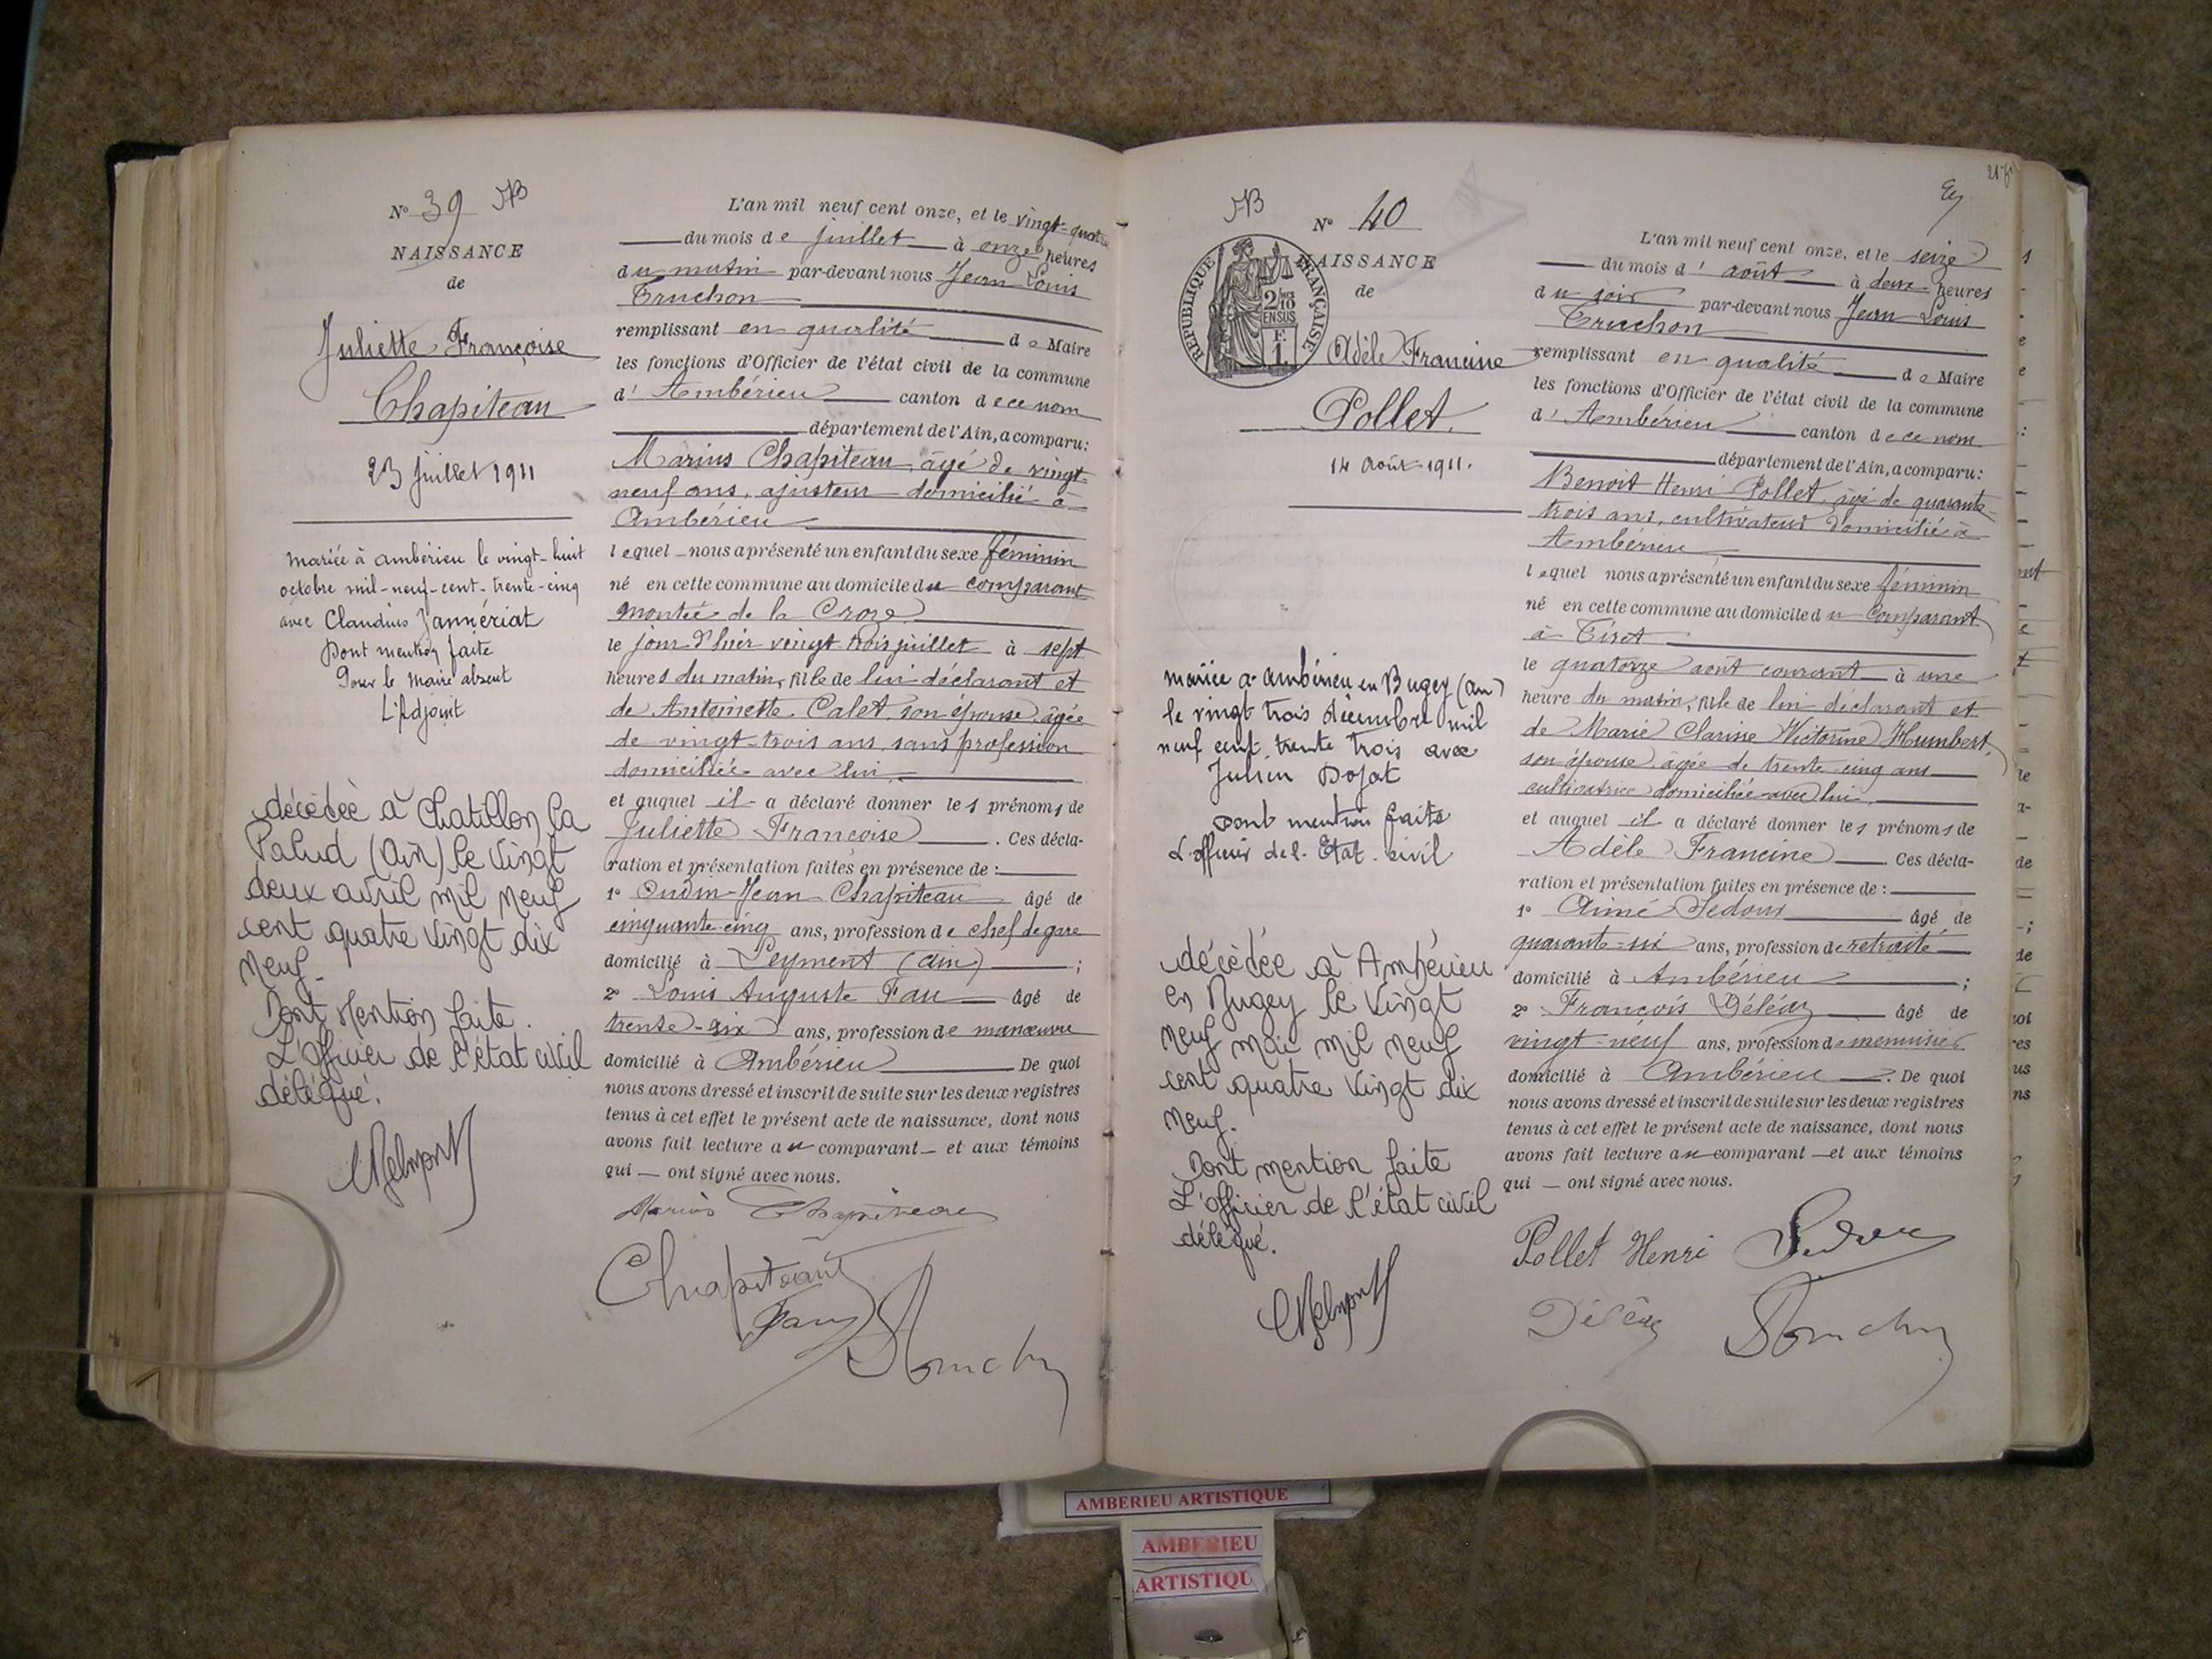 N° 39 NB
NAISSANCE
de
Juliette Françoise
Chapiteau
23 juillet 1911
mariée à ambérieu le vingt-huit
octobre mil-neuf-cent-trente-cinq
avec Claudius Janneriat
Dont mention faite
Pour le Maire absent
L'Adjoint
décédée à Chatillon la
Palud (Ain) le vingt
deux avril mil neuf
cent quatre vingt dix
neuf.
Dont Mention faite.
L'Officier de l'état civil
délégué.
L'an mil neuf cent onze, et le vingt-quatre
du mois de juillet à onze heures
du matin par-devant nous Jean Louis
Truchon
remplissant en qualité de Maire
les fonctions d'Officier de l'état civil de la commune
d'Ambérieu canton de ce nom
département de l'Ain, a comparu:
Marius Chapiteau, âgé de vingt-
neuf ans, ajusteur domicilié à
Ambérieu
lequel nous a présenté un enfant du sexe féminin
né en cette commune au domicile du comparant
montée de la Croze
le jour d'hier vingt trois juillet à sept
heures du matin, fille de lui déclarant et
de Antoinette Calet, son épouse, âgée
de vingt-trois ans, sans profession
domiciliée avec lui,
et auquel il a déclaré donner les prénoms de
Juliette Françoise. Ces décla-
ration et présentation faites en présence de :
1° Oudin-Jean Chapiteau âgé de
cinquante-cinq ans, profession de chef de gare
domicilié à Leyment (Ain) ;
2° Louis Auguste Fau âgé de
trente-six ans, profession de manœuvre
domicilié à Ambérieu De quoi
nous avons dressé et inscrit de suite sur les deux registres
tenus à cet effet le présent acte de naissance, dont nous
avons fait lecture au comparant et aux témoins
qui — ont signé avec nous.
Marius Chapiteau
Chapiteau
Fau
Truchon
NB
N° 40
NAISSANCE
de
RÉPUBLIQUE FRANÇAISE
2/10
EN SUS
F.
1.
Adèle Francine
Pollet.
14 Août 1911.
mariée à Ambérieu en Bugey (Ain)
le vingt trois décembre mil
neuf cent trente trois avec
Julien Dojat
Dont mention faite
L'officier de l'Etat-civil
décédée à Ambérieu
en Bugey le vingt
neuf mai mil neuf
cent quatre vingt dix
neuf.
Dont mention faite
L'Officier de l'état civil
délégué.
L'an mil neuf cent onze, et le seize
du mois d'août à deux heures
du soir par-devant nous Jean Louis
Truchon
remplissant en qualité de Maire
les fonctions d'Officier de l'état civil de la commune
d'Ambérieu canton de ce nom
département de l'Ain, a comparu:
Benoit Henri Pollet, âgé de quarante-
trois ans, cultivateur domicilié à
Ambérieu
lequel nous a présenté un enfant du sexe féminin
né en cette commune au domicile du comparant
à Tiret
le quatorze août courant à une
heure du matin, fille de lui déclarant et
de Marie Clarisse Victorine Humbert,
son épouse, âgée de trente-cinq ans
cultivatrice domiciliée avec lui,
et auquel il a déclaré donner les prénoms de
Adèle Francine. Ces décla-
ration et présentation faites en présence de :
1° Aimé Sedour âgé de
quarante-six ans, profession de retraité
domicilié à Ambérieu ;
2° François Déléaz âgé de
vingt-neuf ans, profession de menuisier
domicilié à Ambérieu. De quoi
nous avons dressé et inscrit de suite sur les deux registres
tenus à cet effet le présent acte de naissance, dont nous
avons fait lecture au comparant et aux témoins
qui — ont signé avec nous.
Pollet Henri
Déléaz
Truchon
AMBERIEU ARTISTIQUE
AMBERIEU
ARTISTIQU